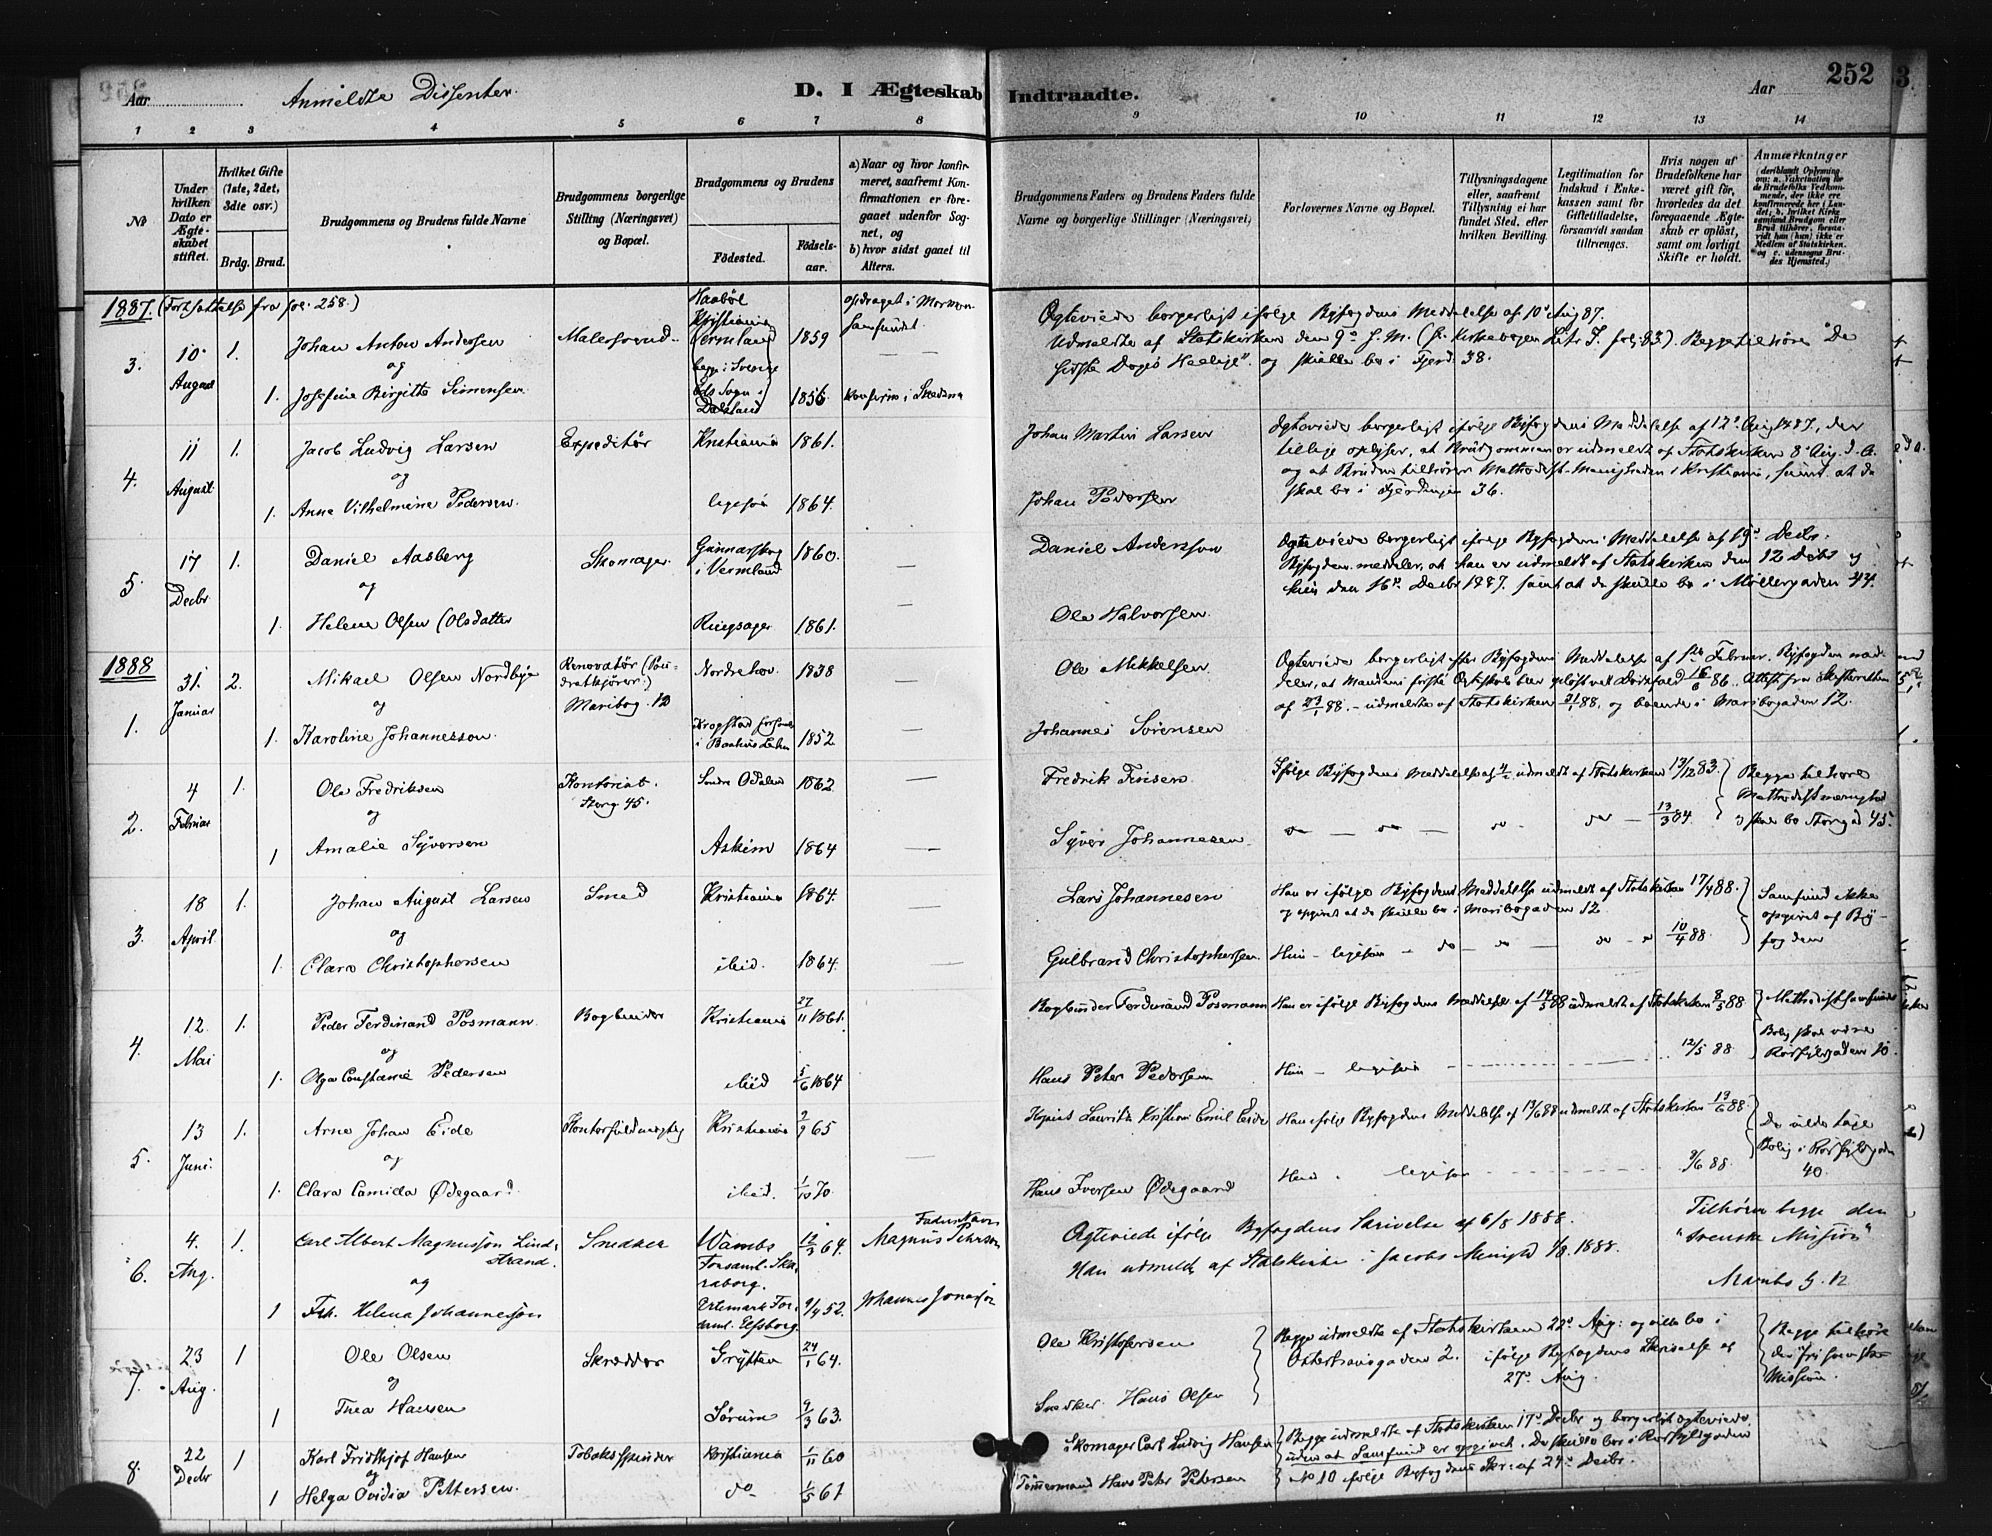 Aar
Anmeldte Dissenter.
D. I Ægteskab Indtraadte.
Aar
252
3.
1 2 3 4 5 6 7 8 9 10 11 12 13 14
No
Under hvilken Dato er Ægteskabet stiftet.
Hvilket Gifte (1ste, 2det, 3die osv.)
Brdg. Brud.
Brudgommens og Brudens fulde Navne
Brudgommens borgerlige Stilling (Næringsvei) og Bopæl.
Brudgommens og Brudens
Fødested.
Fødselsaar.
a) Naar og hvor konfirmeret, saafremt Konfirmationen er foregaaet udenfor Sognet, og
b) hvor sidst gaaet til Alters.
Brudgommens Faders og Brudens Faders fulde Navne og borgerlige Stillinger (Næringsvei)
Forlovernes Navne og Bopæl.
Tillysningsdagene eller, saafremt Tillysning ei har fundet Sted, efter hvilken Bevilling.
Legitimation for Indskud i Enkekassen samt for Giftetilladelse, forsaavidt saadan tiltrænges.
Hvis nogen af Brudefolkene har været gift før, hvorledes da det foregaaende Ægteskab er opløst, samt om lovligt Skifte er holdt.
Anmærkninger
1887. (Fortsættelse fra fol. 258.)
3. 10 August 1. Johan Anton Andersen Malersvend Kristiania 1859 opdraget i Mormon Samfundet
og
1. Josefine Birgitte Simensen Dalsland 1856
Ægteviede borgerligt ifølge Byfogdens Meddelelse af 10de Aug 87.
Udmeldte af Statskirken den 9de s. M. Begge tilhøre "De
sidste Dages Hellige". og skulle bo i Fjerd. 38.
4. 11 August 1. Jacob Ludvig Larsen Expeditør Kristiania 1861. Johan Martin Larsen
og
1. Anne Vilhelmine Pedersen. ligesaa 1864. Johan Pedersen
Ægteviede borgerligt ifølge Byfogdens Meddelelse af 12te Aug 1887, der
tillige oplyser, at Brudgommen er udmeldt af Statskirken 8 Aug. d. A.
og at Bruden tilhører Methodist-Menigheden i Kristiania, samt at de
skal bo i Fjerdingen 36.
5. 17 Decbr 1. Daniel Aasberg Skomager Gunnarskog i Vermland 1860. Daniel Andersson
og
1. Helene Olsen (Olsdatter Ringsager 1861. Ole Halvorsen.
Ægteviede borgerligt ifølge Byfogdens Meddelelse af 19de Decbr.
Byfogden meddeler, at han er udmeldt af Statskirken den 12 Decbr og
hun den 16de Decbr 1887. samt at de skulle bo i Møllergaden 44.
1888
1. 31. Januar 2. Mikael Olsen Nordbye Renovatør Maribog. 12 Nordrehov 1838 Ole Mikkelsen
og
1. Karoline Johannesson. 1852 Johannes Sörensen
Ægteviede borgerligt efter Byfogdens Meddelelse af 1ste Februar. Byfogden med-
deler, at Mandens første Ægteskab blev opløst ved Dødsfald 16/6 86. Attest fra Skifteretten
af 23/1 88. - udmeldte af Statskirken 31/1 88. og boende i Maribogaden 12.
2. 4 Februar 1. Ole Fredriksen Kontorist. Storg 45. Søndre Odalen 1862 Fredrik Finsen
og
1 Amalie Syversen Askim 1864 Syver Johannesen
Ifølge Byfogdens Meddelelse af 4/2 udmeldt af Statskirken 13/12 83.
do — do — do — do — 13/3 84.
Begge tilhøre Methodistmenighed og skal bo Storgad 45.
3. 18 April. 1. Johan August Larsen Smed Kristiania 1864. Lars Johannesen
og
1. Clara Christophersen ibid. 1864. Gulbrand Christophersen.
Han er ifølge Byfogdens Meddelelse udmeldt af Statskirken 17/4 88.
og opgivet at de skulle bo i Maribogaden 12
Hun - ligesaa - do - do - do - 10/4 88.
Samfund ikke opgivet af Byfogden
4. 12. Mai 1. Peder Ferdinand Posmann. Bogbinder Kristiania 27/11 1861. Bogbinder Ferdinand Posmann
og
1. Olga Constance Pedersen ibid 5/6 1864 Hans Peter Pedersen
Han er ifølge Byfogdens Meddelelse af 14/5 88 udmeldt af Statskirken 8/5 88
Hun - ligesaa - 12/5 88
Methodistsamfundet
Bolig skal være Rosfyldgaden 10.
5. 13 Juni. 1. Arne Johan Eide Kontorfuldmægtig Kristiania 2/9 65 Lauritz Kristian Emil Eide
og
1. Clara Camilla Ødegaard ibid. 1/10 70. Hans Iversen Ødegaard
Han ifølge Byfogdens Meddelelse af 13/6 88 udmeldt af Statskirken 13/6 88.
Hun. ligesaa 9/6 88.
De vilde tage Bolig i 40.
6. 4. Aug. 1. Carl Albert Magnusson Lindstrand. Snedker Wambs Forsaml. Skaraborg. 12/3 64. Fadersnavn Magnus Pehrson
og
1 Frk. Helena Johannesson Ertemark Forsaml. Elfsborg. 9/4 52. Johannes Jonasson
Ægteviede ifølge Byfogdens Skrivelse af 6/8 1888.
Han udmeldt af Statskirke i Jacobs Menighd 4/8. 1888.
Tilhører begge den "Svenske Mission"
Maribo g. 12
7. 23 Aug. 1 Ole Olsen Skrædder Grytten 24/1 64. Ole Kristofersen
og
1 Thea Hansen Sørum 9/3 63. Snedker Hans Olsen
Begge udmeldte af Statskirken 22de Aug. og ville bo i
Østertraasgaden 2. ifølge Byfogdens Skrivelse af
27de Aug.
Begge tilhøre den frie Mission.
8. 22 Decbr 1 Karl Fridthjof Hansen Tobaksspinder Kristiania 1/11 60 Skomager Carl Ludvig Hansen
og
1 Helga Ovidia Pettersen. do 1/5 67 Tømmermand Hans Peter Petersen
Begge udmeldte af Statskirken 17de Decbr og borgerligt ægteviede,
uden at Samfund er opgivet. De skulle bo i Rosfyldgaden
No 10 ifølge Byfogdens Skr. af 24de Decbr.